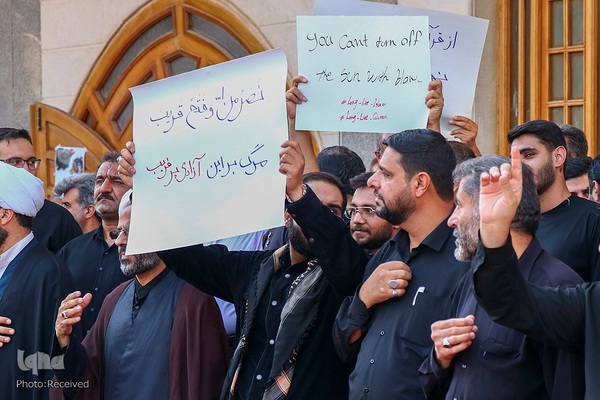 نَصْرٌ مِن الله وفَتْحٌ قریب
مرگ بر این آزادی پر فریب
You Cant turn off
the Sun with blow_
#Long_Live_Islam
#Long_Live_Quran
از
iqna
Photo:Received